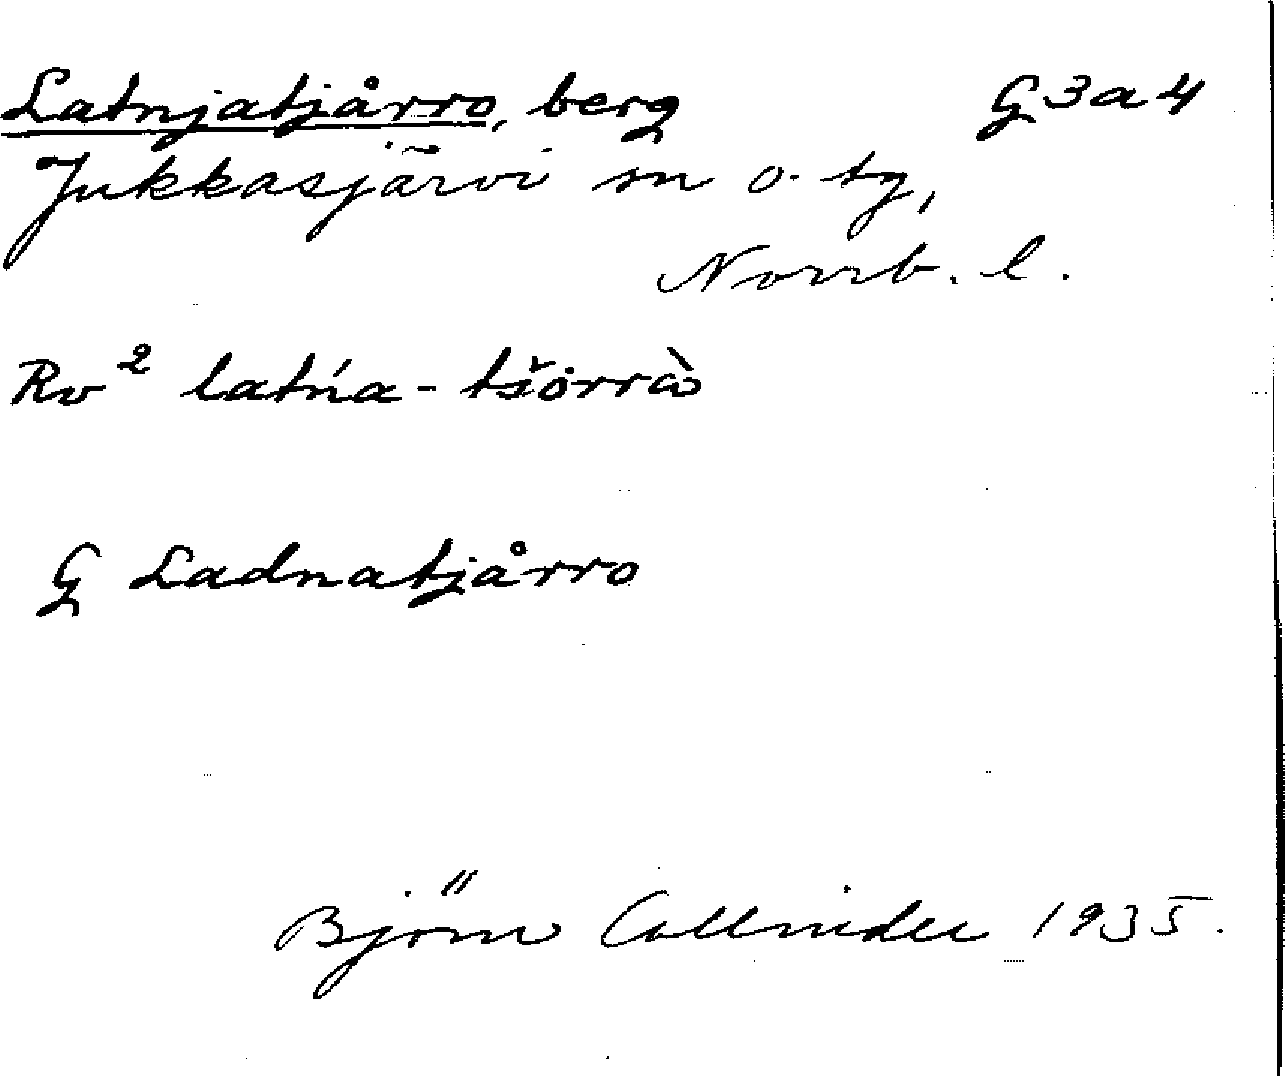 Latnjatjårro, berg G3a4
Jukkasjärvi sn o. tg,
Norrb. l.
Rv² latńa-tšorrà
G Ladnatjårro
Björn Collinder 1935.